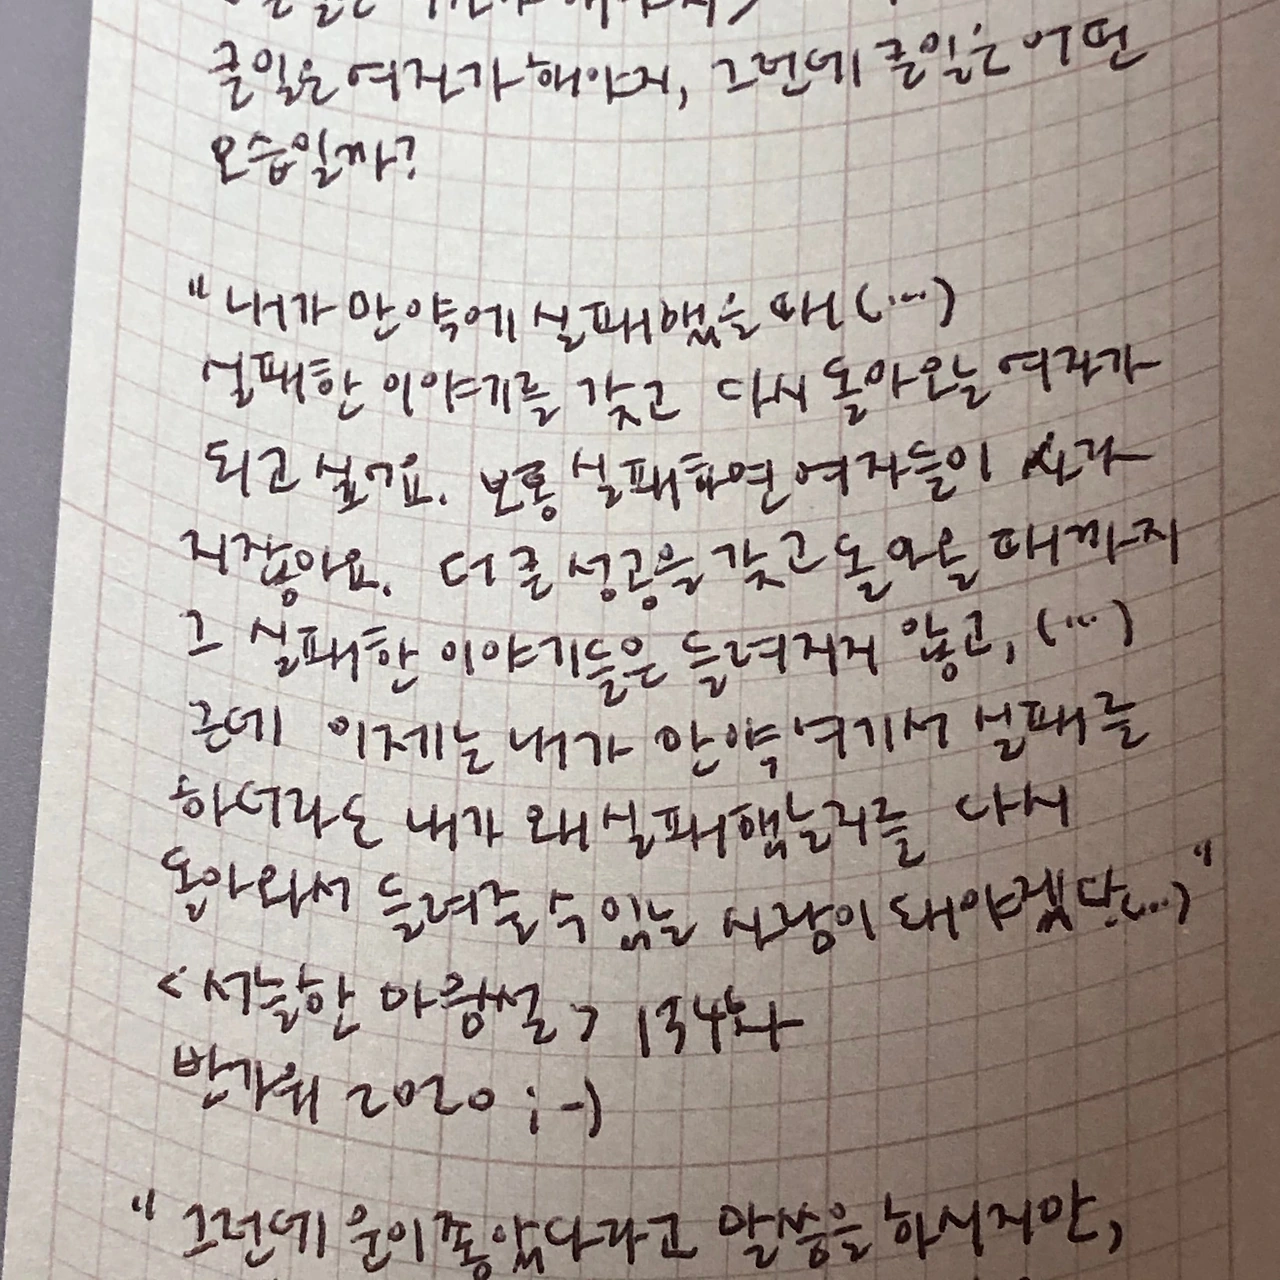 큰일은 여자가 해야지, 그런데 큰일은 어떤
모습일까?
"내가 만약에 실패했을 때 (...)
실패한 이야기를 갖고 다시 돌아오는 여자가
되고 싶어요. 보통 실패하면 여자들이 사라
지잖아요. 더 큰 성공을 갖고 돌아올 때까지
그 실패한 이야기들은 들려지지 않고, (...)
근데 이제는 내가 만약 여기서 실패를
하더라도 내가 왜 실패했는지를 다시
돌아와서 들려줄 수 있는 사람이 돼야겠단(...)"
<서늘한 마음썰> 134화
반가워 2020 ;-)
"그런데 운이 좋았다라고 말씀을 하시지만,